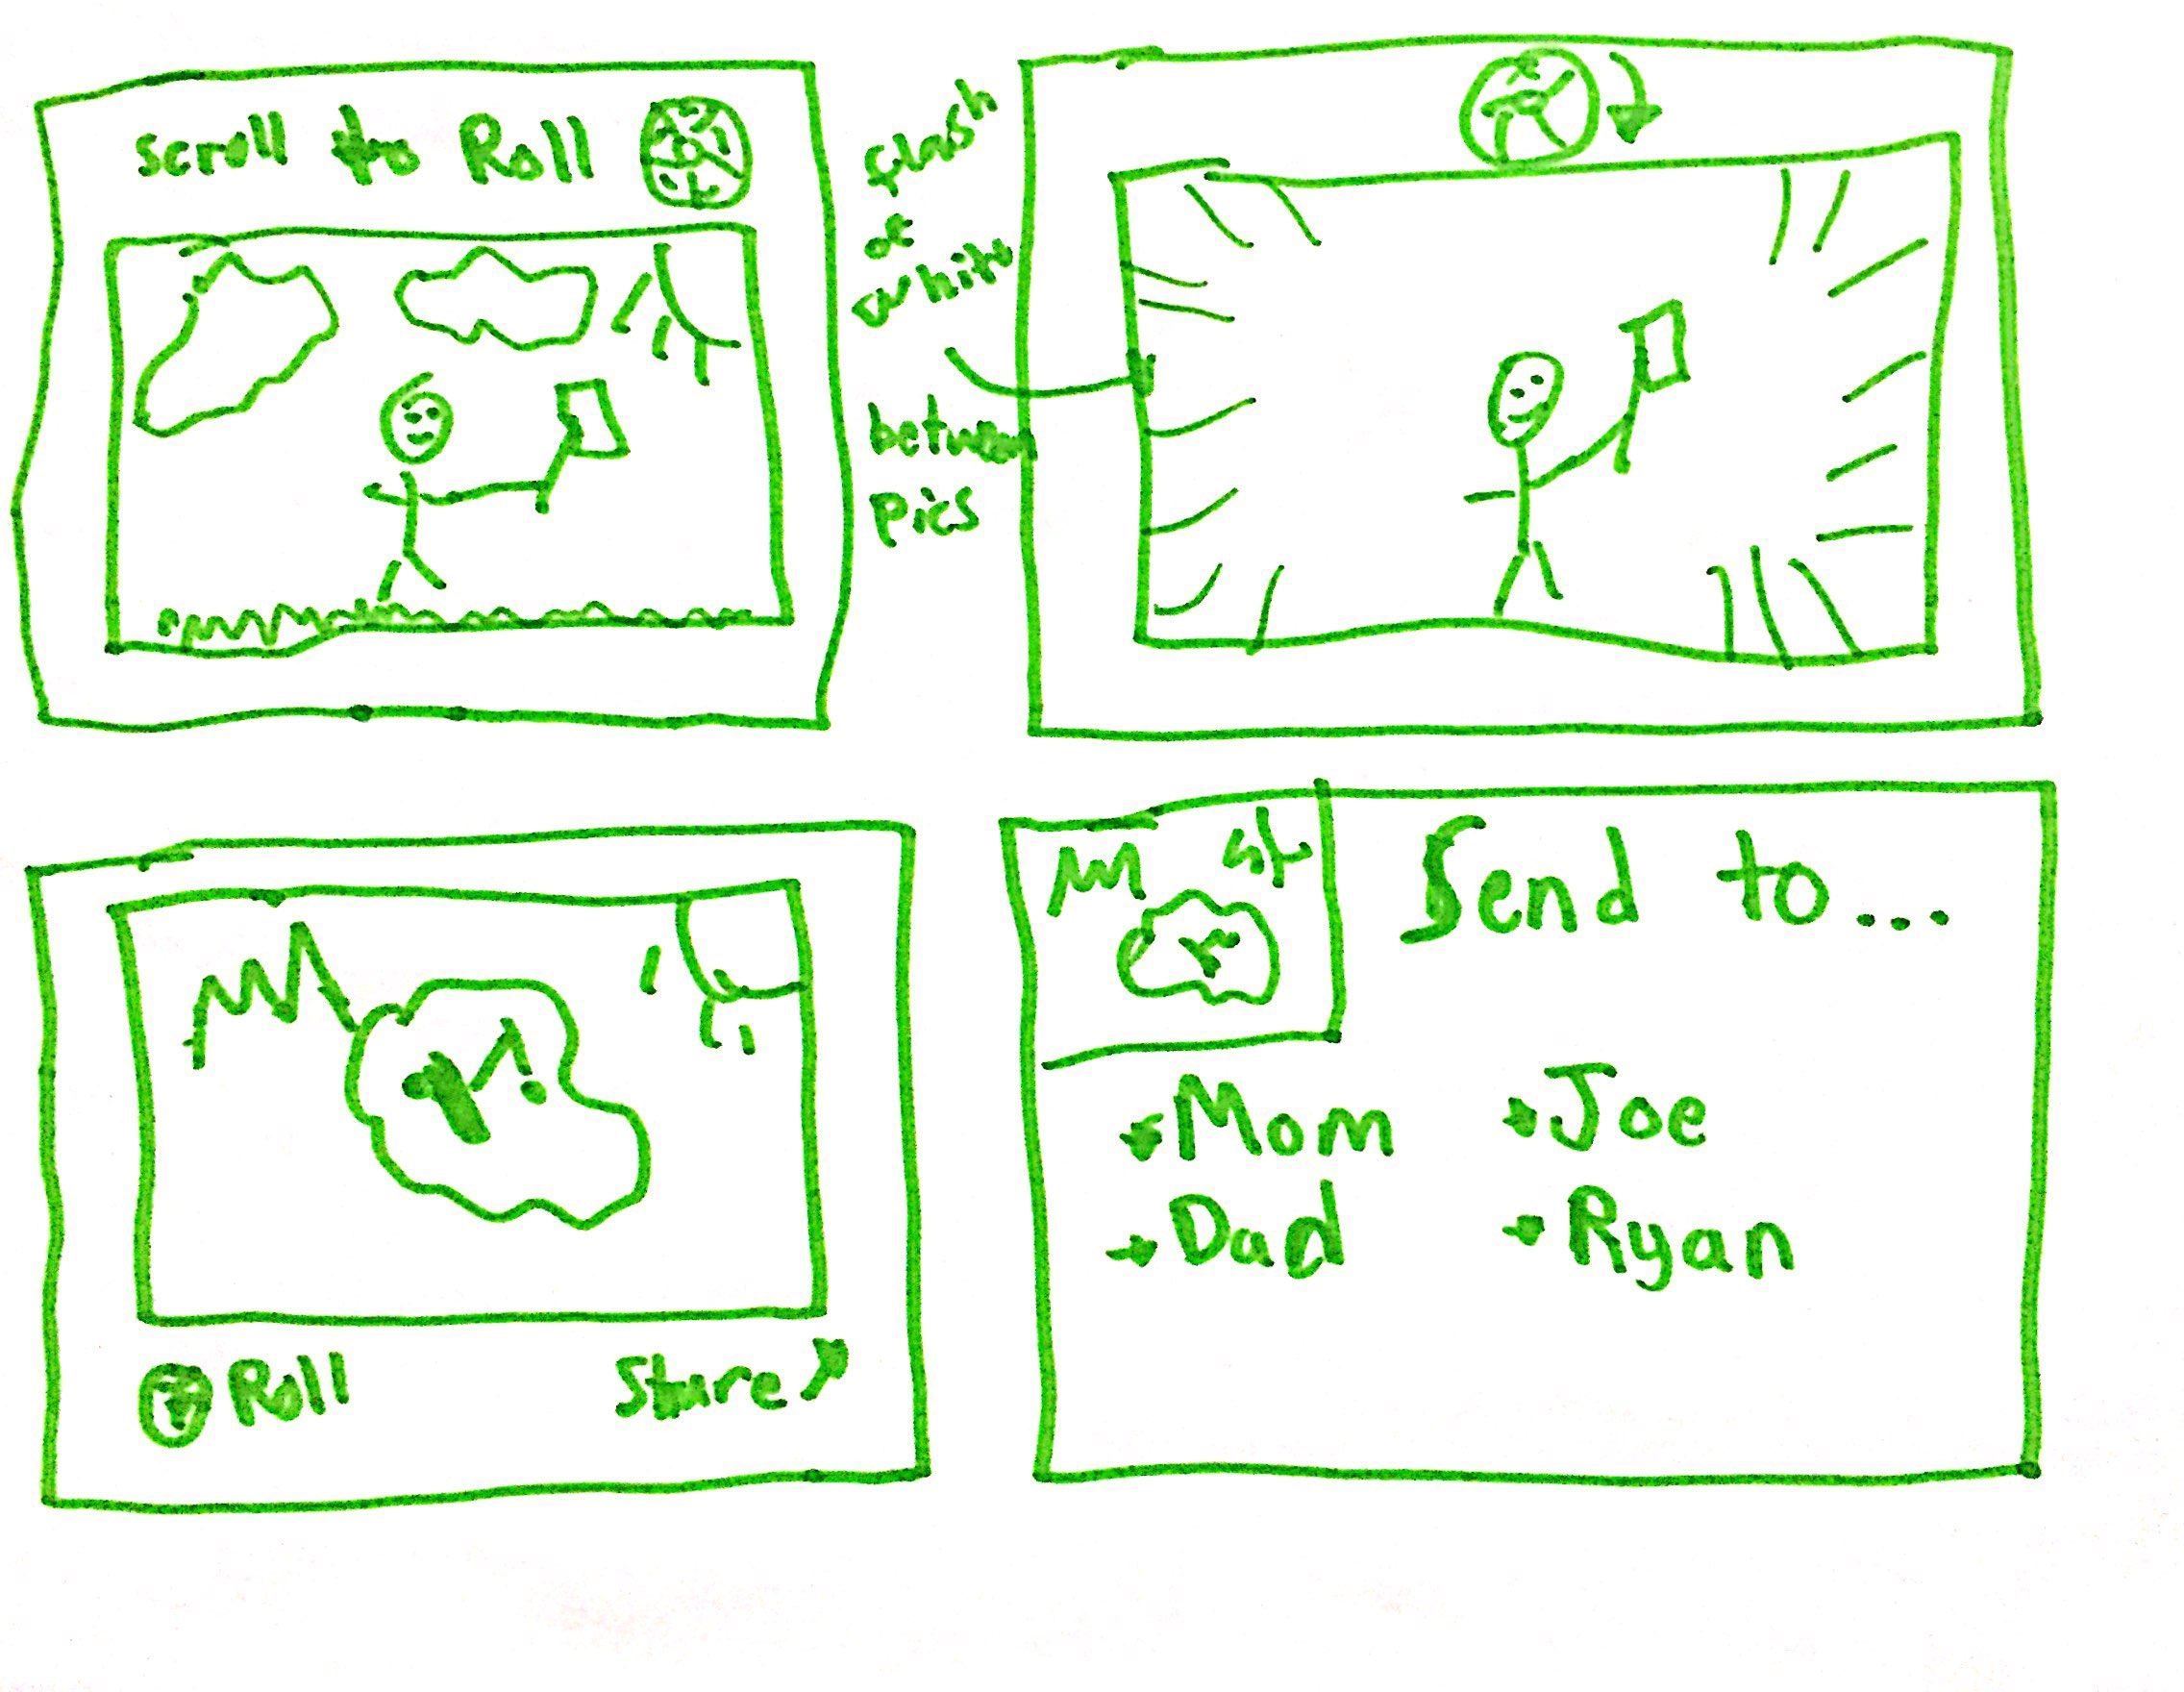 Scroll to Roll
flash
of
white
between
pics
Roll
Share
Send to...
Mom
Joe
Dad
Ryan